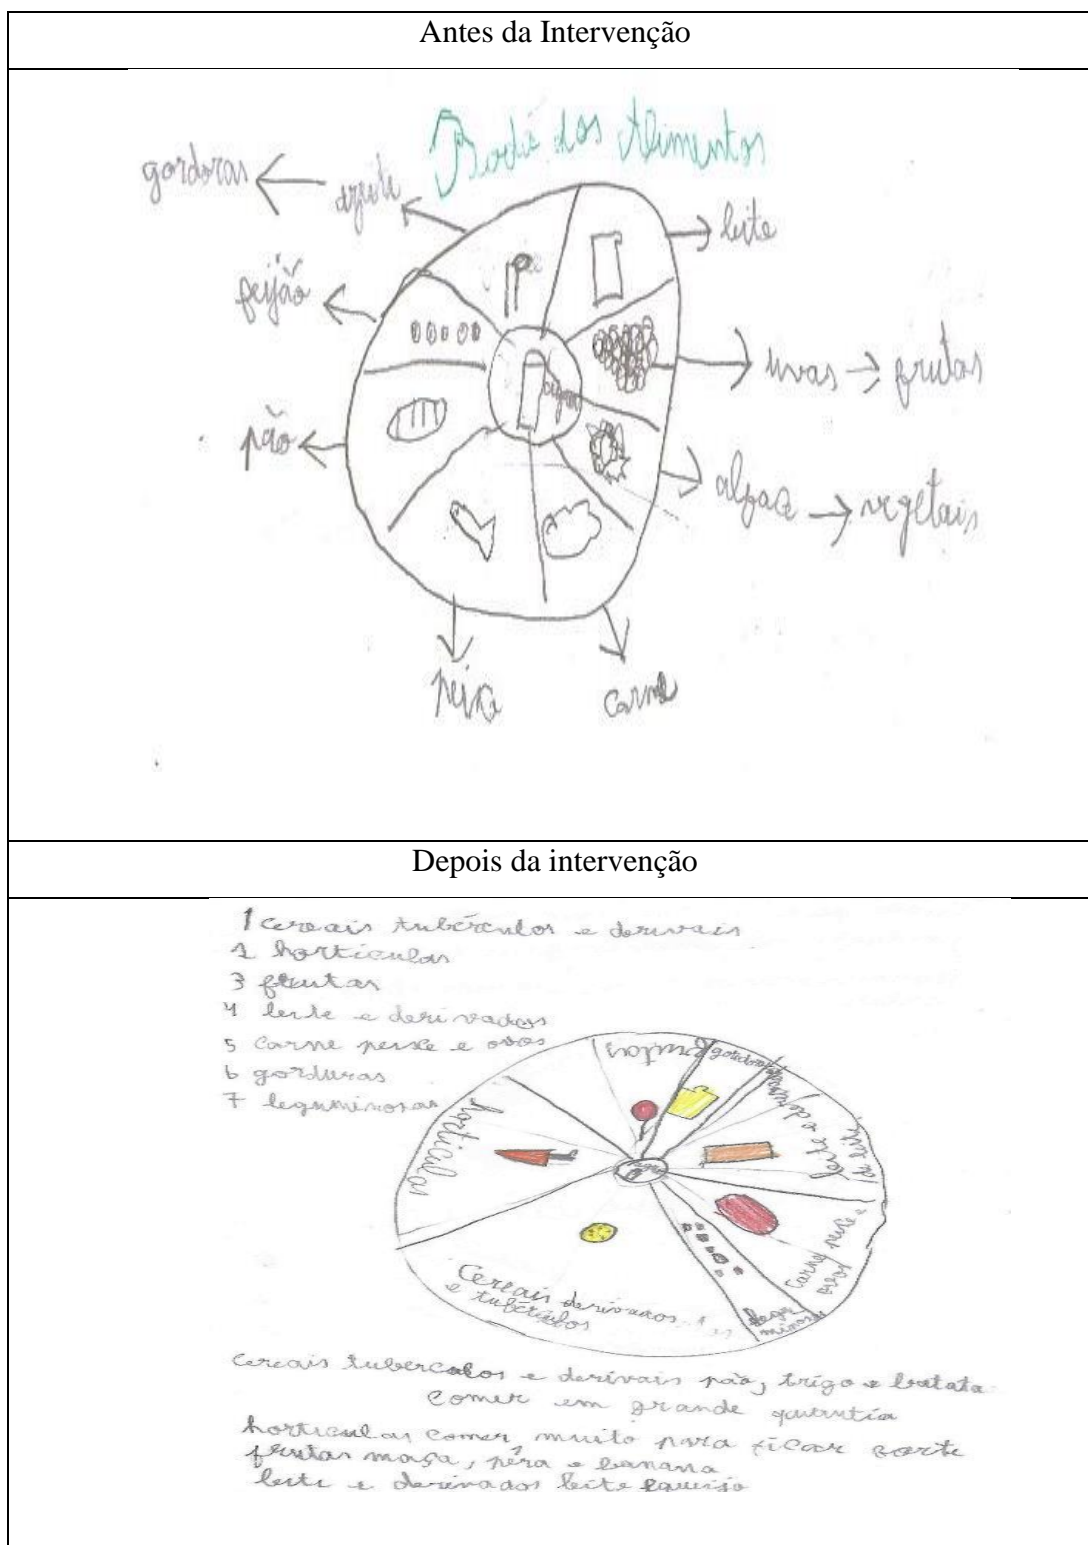 Antes da Intervenção
Roda dos Alimentos
gordoras
azeite
leite
feijão
uvas
frutas
pão
alface
vegetais
peixe
carne
Depois da intervenção
1 cereais tubérculos e derivais
2 horticulas
3 frutas
4 leite e derivados
5 carne peixe e ovos
6 gorduras
7 leguminosas
frutas
horticulas
Carne peixe e
ovos
Cereais derivados
e tubérculos
legu
minosas
cereais tuberculos e derivais pão, trigo e batata
comer em grande
horticulas comer muito para ficar forte
frutas maça, pêra e banana
leite e derivados leite